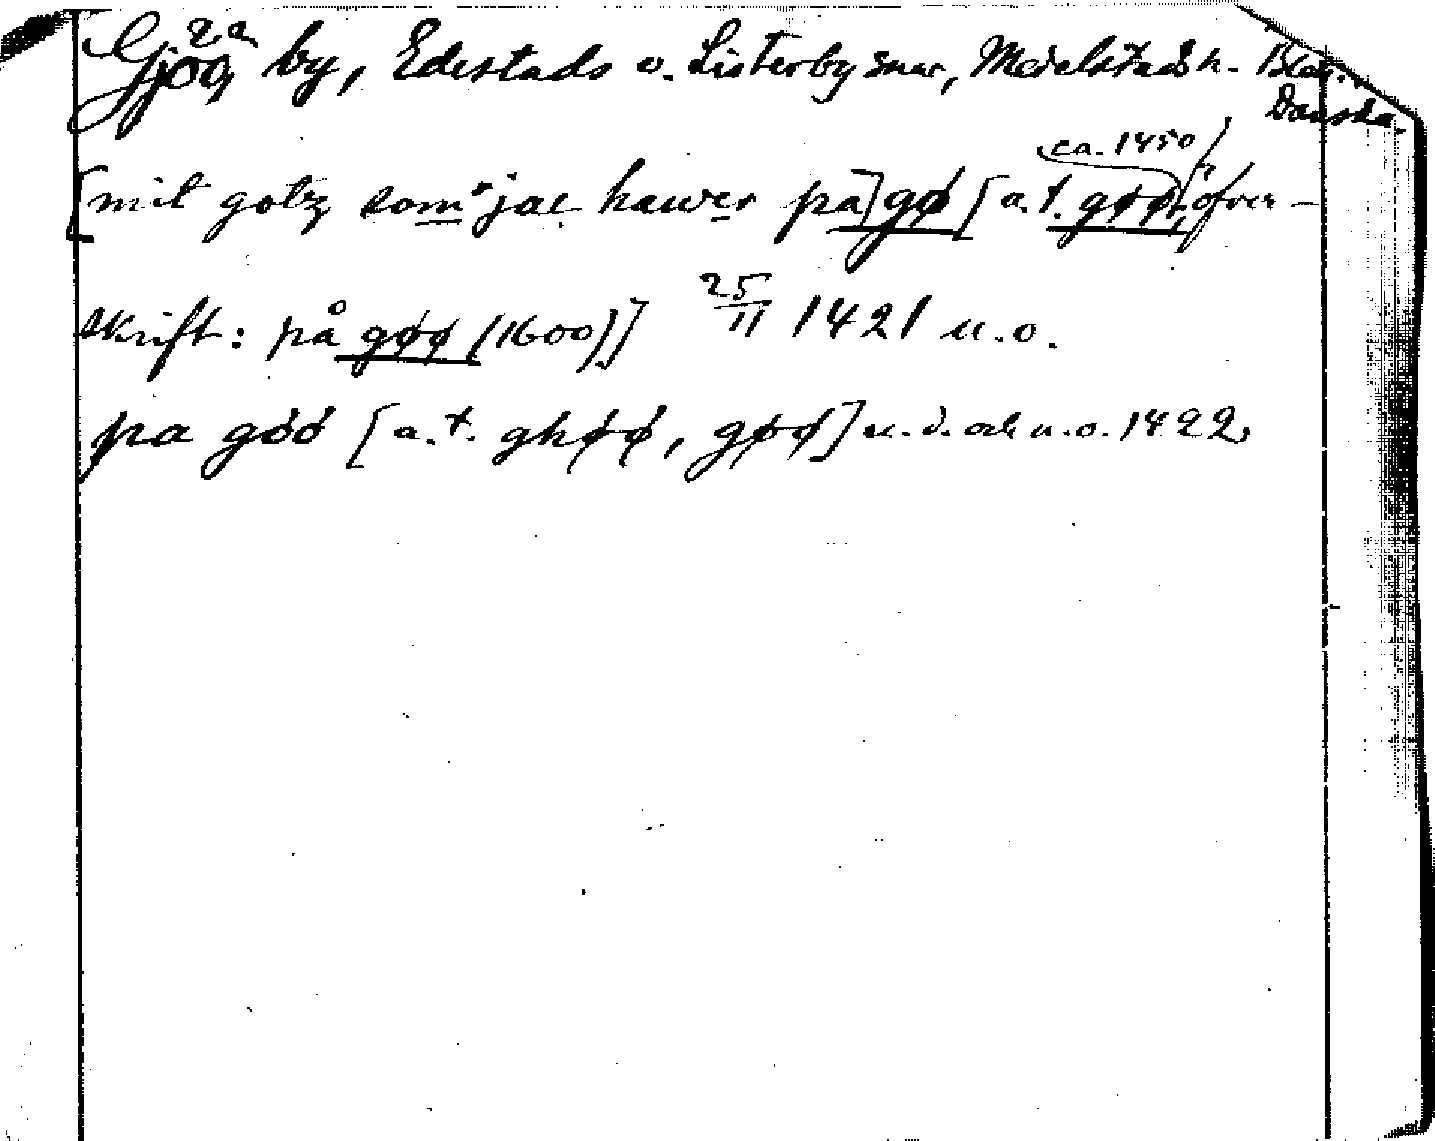 Gjöa by, Edestads o. Listerby snar, Medelstads h. Blek.
Danska.
[mit gotz som jac hawer pa] gø [a. t. gøø, ca. 1450, öfver-
skrift: på gøø (1600)] 25/11 1421 u. o.
pa göö [a. t. ghøø, gøø] u. d. och u. o. 1422,